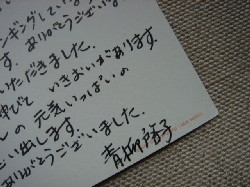 ンギングしている
す. ありがとうござい
いただきました.
いきおいがあります.
しの 元気いっぱいの
い出します.
ありがとうございました.